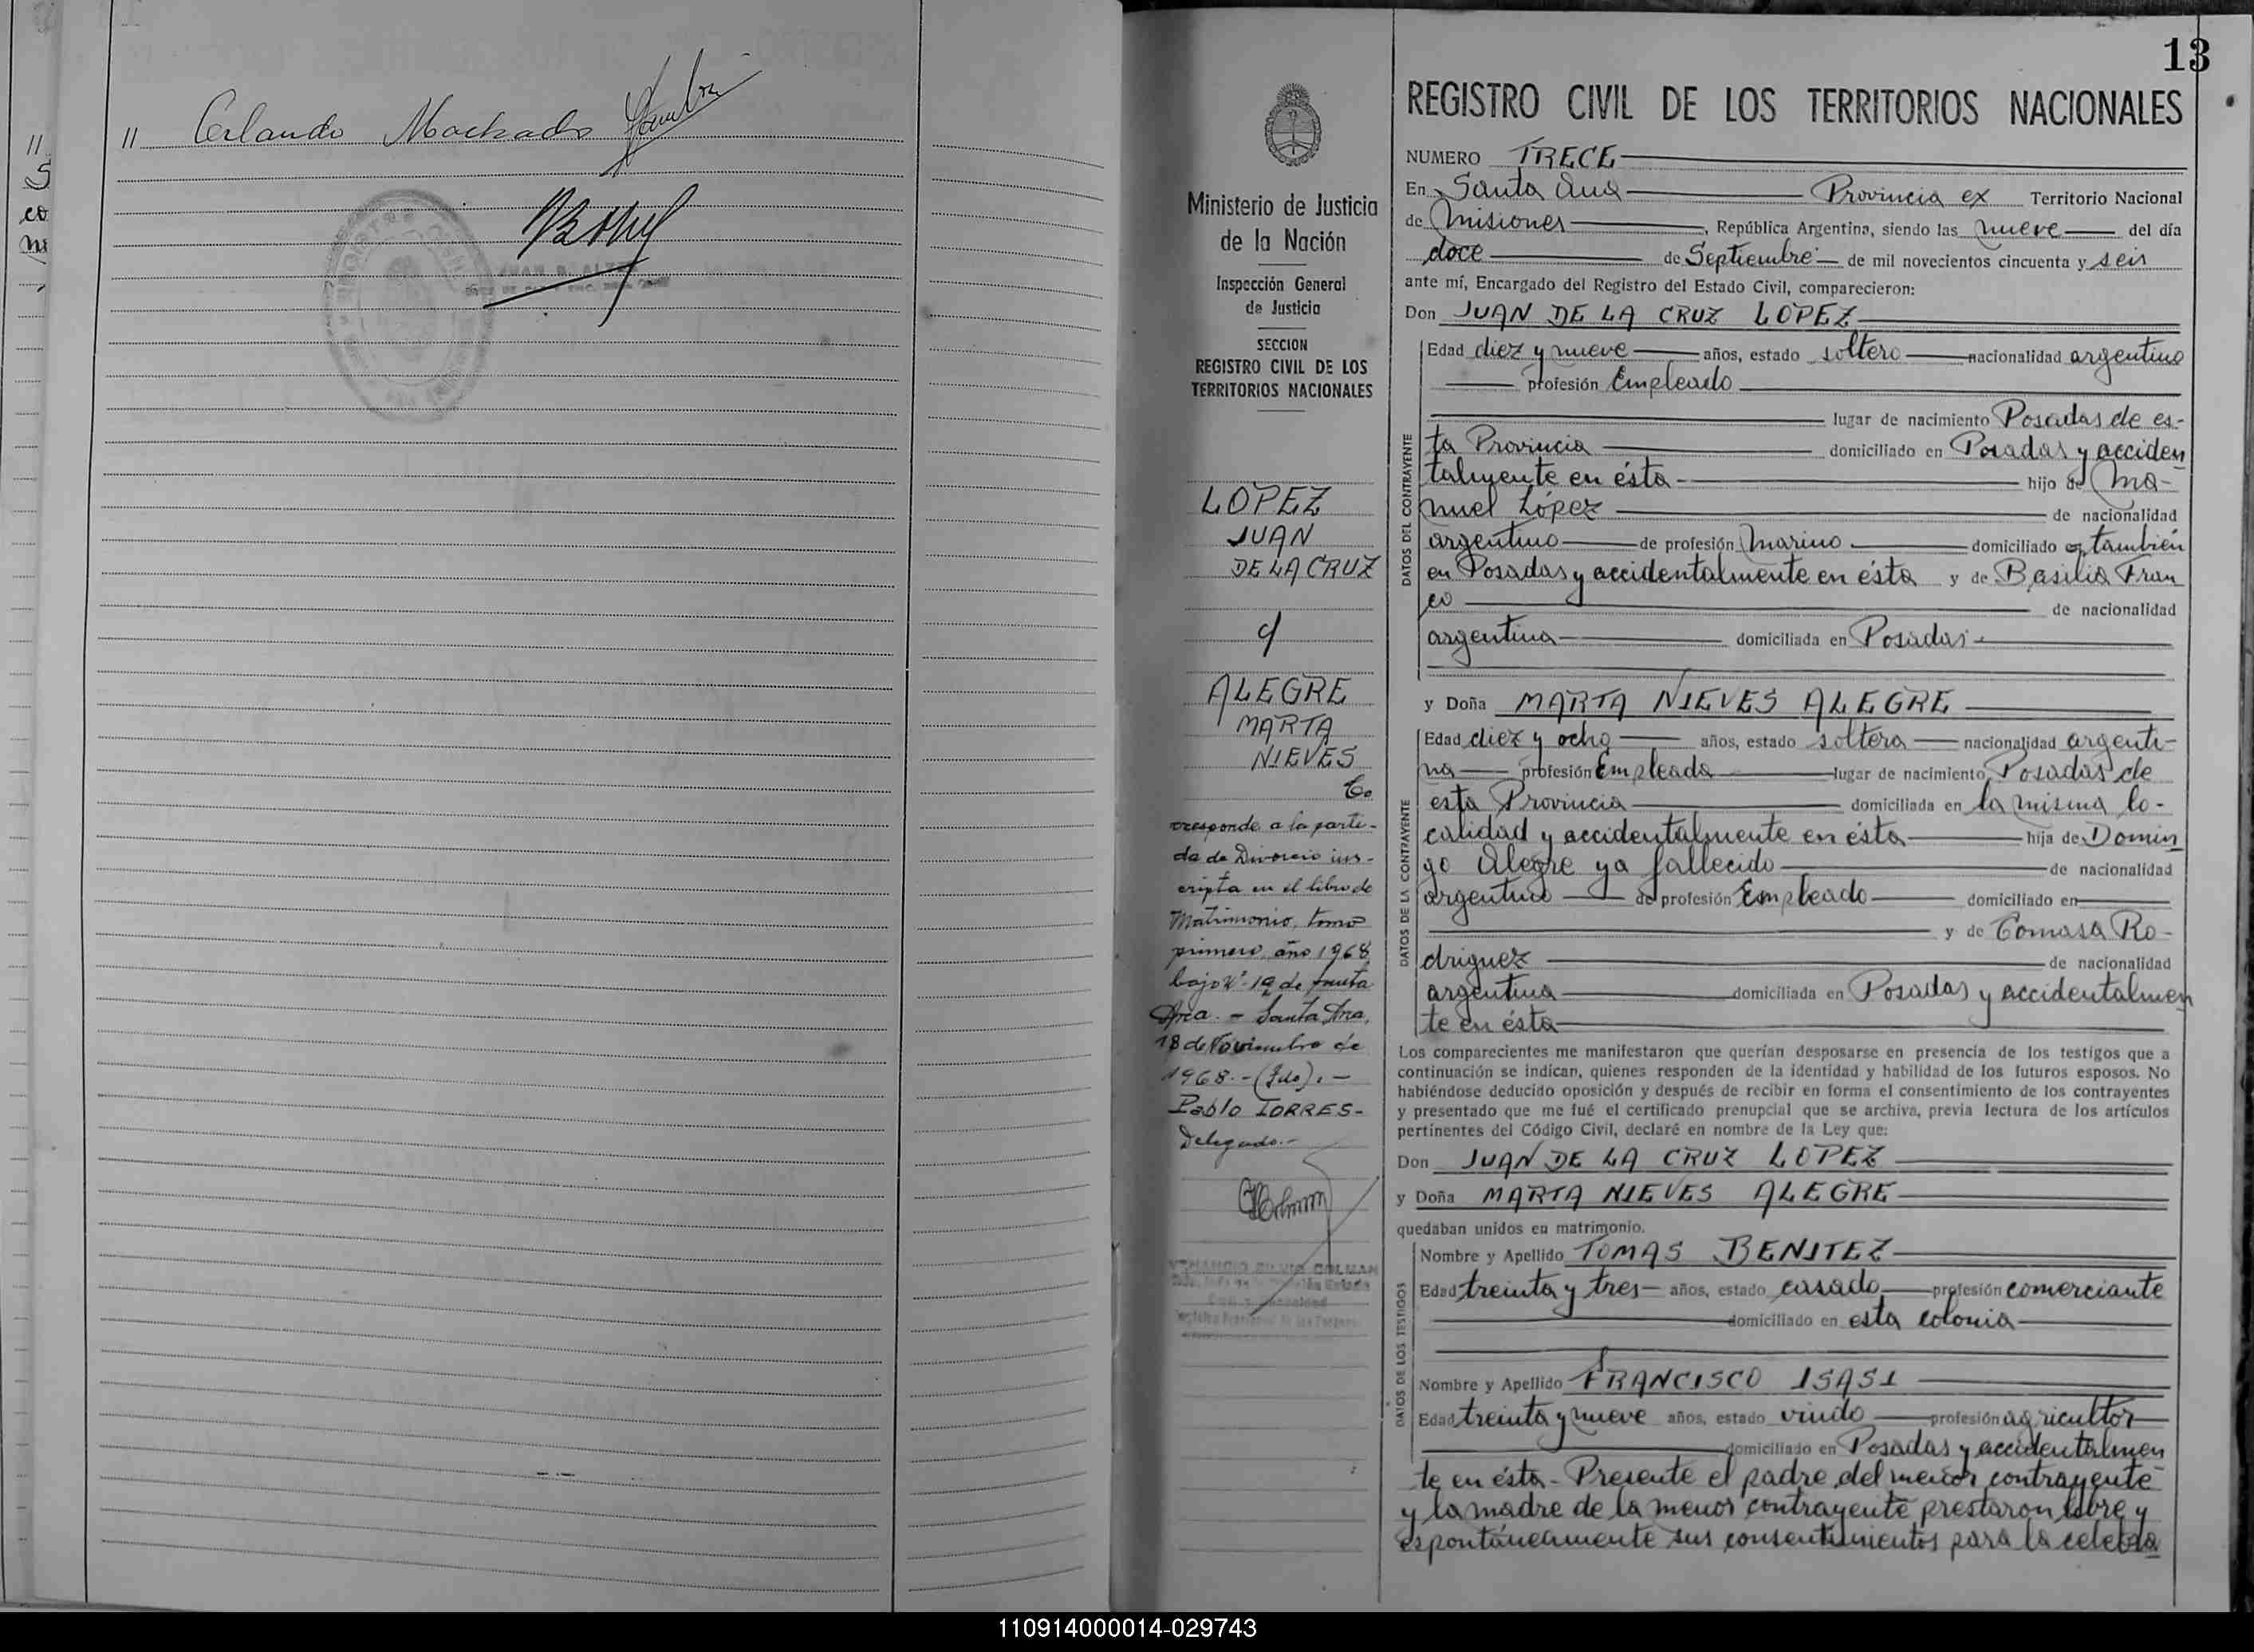 // Orlando Machado
13
REGISTRO CIVIL DE LOS TERRITORIOS NACIONALES
Ministerio de Justicia
de la Nación
Inspección General
de Justicia
SECCION
REGISTRO CIVIL DE LOS
TERRITORIOS NACIONALES
LOPEZ
JUAN
DE LA CRUZ
y
ALEGRE
MARTA
NIEVES
Co
rresponde a la parti-
da de Divorcio ins-
cripta en el libro de
Matrimonio, tomo
primero, año 1968
bajo Nº 12 de Santa
Ana. - Santa Ana,
18 de Noviembre de
1968.- (Fdo). -
Pablo TORRES-
Delegado.-
NUMERO TRECE
En Santa Ana Provincia ex Territorio Nacional
de Misiones, República Argentina, siendo las nueve del día
doce de Septiembre de mil novecientos cincuenta y seis
ante mí, Encargado del Registro del Estado Civil, comparecieron:
Don JUAN DE LA CRUZ LOPEZ
DATOS DEL CONTRAYENTE
Edad diez y nueve años, estado soltero nacionalidad argentino
profesión Empleado
lugar de nacimiento Posadas de es-
ta Provincia domiciliado en Posadas y acciden
talmente en ésta hijo de Ma-
nuel López de nacionalidad
argentino de profesión Marino domiciliado en también
en Posadas y accidentalmente en ésta y de Basilia Fran
co de nacionalidad
argentina domiciliada en Posadas
y Doña MARTA NIEVES ALEGRE
DATOS DE LA CONTRAYENTE
Edad diez y ocho años, estado soltera nacionalidad argenti-
na profesión Empleada lugar de nacimiento Posadas de
esta Provincia domiciliada en la misma lo-
calidad y accidentalmente en ésta hija de Domin
go Alegre ya fallecido de nacionalidad
argentino de profesión Empleado domiciliado en
y de Tomasa Ro-
driguez de nacionalidad
argentina domiciliada en Posadas y accidentalmen
te en ésta
Los comparecientes me manifestaron que querían desposarse en presencia de los testigos que a
continuación se indican, quienes responden de la identidad y habilidad de los futuros esposos. No
habiéndose deducido oposición y después de recibir en forma el consentimiento de los contrayentes
y presentado que me fué el certificado prenupcial que se archiva, previa lectura de los artículos
pertinentes del Código Civil, declaré en nombre de la Ley que:
Don JUAN DE LA CRUZ LOPEZ
y Doña MARTA NIEVES ALEGRE
quedaban unidos en matrimonio.
DATOS DE LOS TESTIGOS
Nombre y Apellido TOMAS BENITEZ
Edad treinta y tres años, estado casado profesión comerciante
domiciliado en esta colonia
Nombre y Apellido FRANCISCO ISASI
Edad treinta y nueve años, estado viudo profesión agricultor
domiciliado en Posadas y accidentalmen
te en ésta - Presente el padre del menor contrayente
y la madre de la menor contrayente prestaron libre y
espontáneamente sus consentimientos para la celebra
110914000014-029743